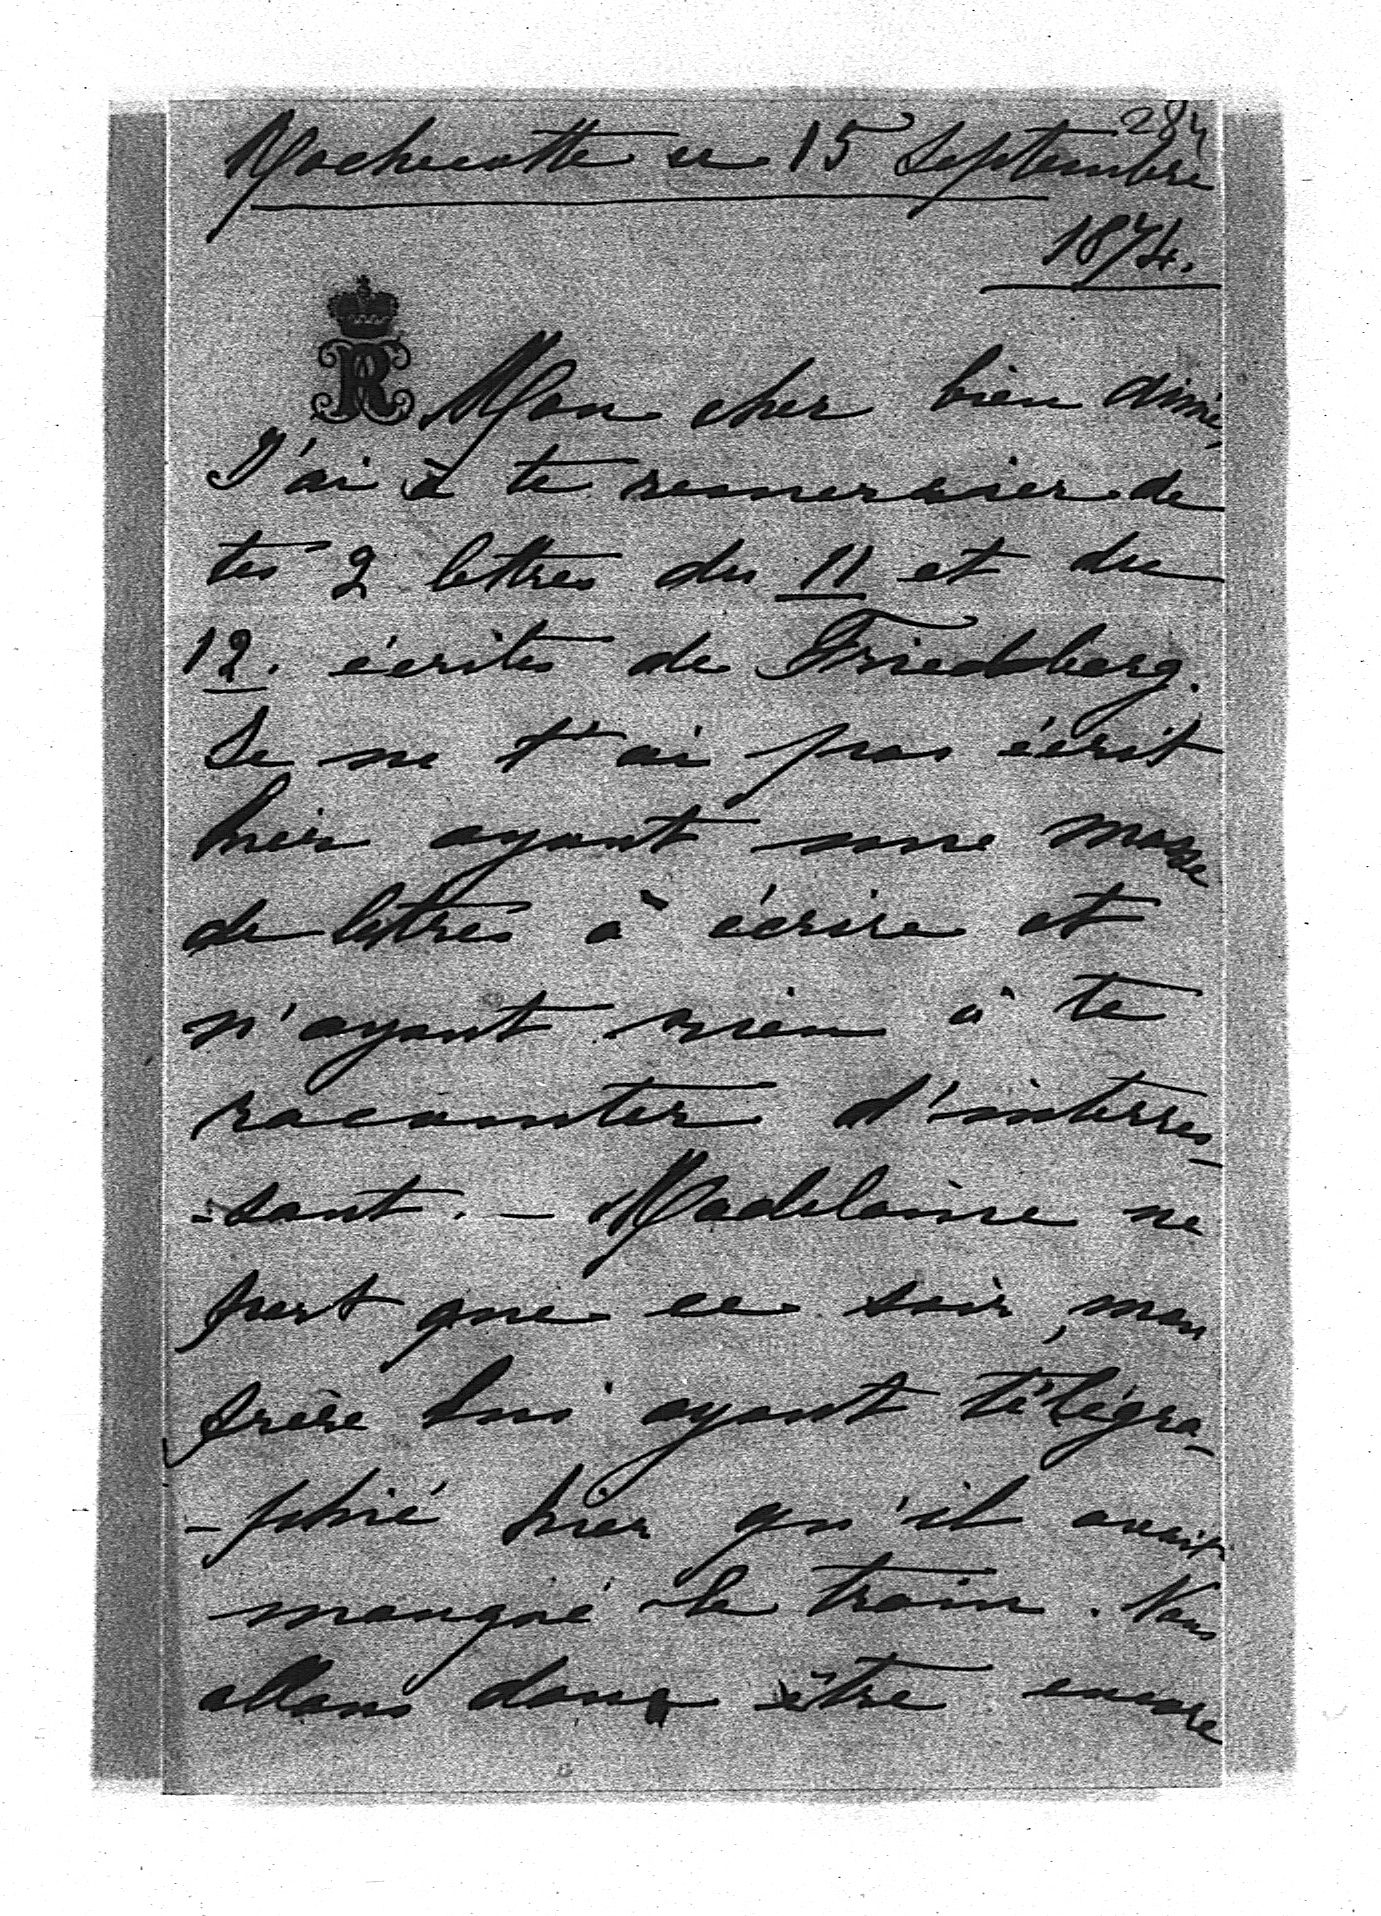 284
Rochecotte ce 15 Septembre
1874.
R
Mon cher bien aimé,
J'ai à te remercier de
tes 2 lettres du 11 et du
12. écrites de Friedberg.
Je ne t'ai pas écrit
hier ayant une masse
de lettres à écrire et
n'ayant rien à te
raconter d'interres-
-sant. – Madelaine ne
part que ce soir, mon
frère lui ayant télégra-
-phié hier qu'il avait
manqué le train. Nous
allons donc être encore